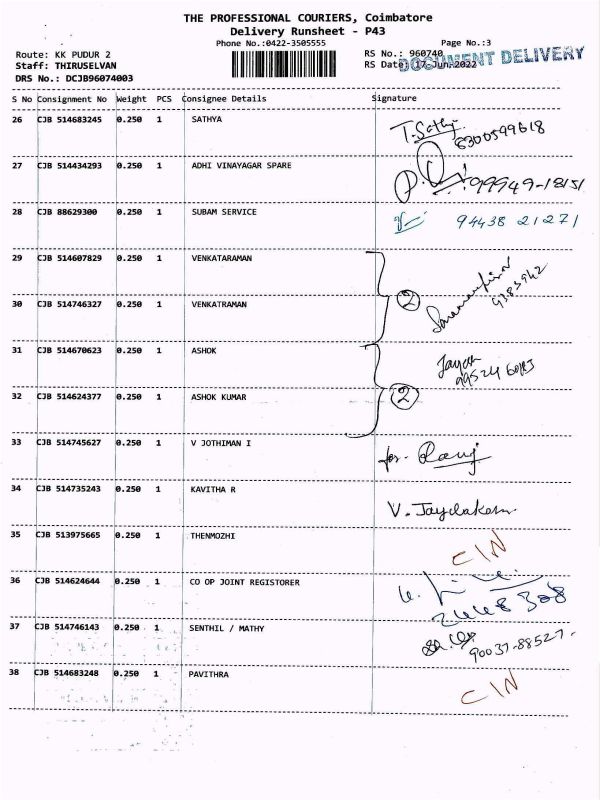 THE PROFESSIONAL COURIERS, Coimbatore
Delivery Runsheet - P43
Phone No.:0422-3505555
Page No.:3
Route: KK PUDUR 2
RS No.: 960740
DOCUMENT DELIVERY
Staff: THIRUSELVAN
RS Date: 17-Jun-2022
DRS No.: DCJB96074003
S No Consignment No Weight PCS Consignee Details Signature
26 CJB 514683245 0.250 1 SATHYA T. Sathy 6300599618
27 CJB 514434293 0.250 1 ADHI VINAYAGAR SPARE 99949-18151
28 CJB 88629300 0.250 1 SUBAM SERVICE 94438 21271
29 CJB 514607829 0.250 1 VENKATARAMAN
30 CJB 514746327 0.250 1 VENKATRAMAN 2
31 CJB 514670623 0.250 1 ASHOK
32 CJB 514624377 0.250 1 ASHOK KUMAR 2
33 CJB 514745627 0.250 1 V JOTHIMAN I for.
34 CJB 514735243 0.250 1 KAVITHA R V.
35 CJB 513975665 0.250 1 THENMOZHI C/N
36 CJB 514624644 0.250 1 CO OP JOINT REGISTORER 2448308
37 CJB 514746143 0.250 1 SENTHIL / MATHY 90037-88527
38 CJB 514683248 0.250 1 PAVITHRA C/N